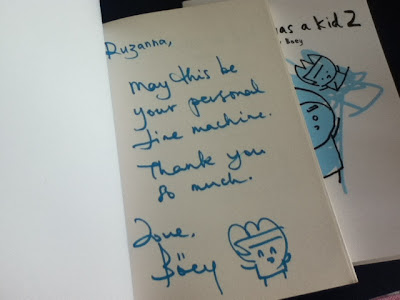 Ruzanna,
May this be
your personal
time machine.
Thank you
so much.
Love,
Böey
as a kid 2
Boey